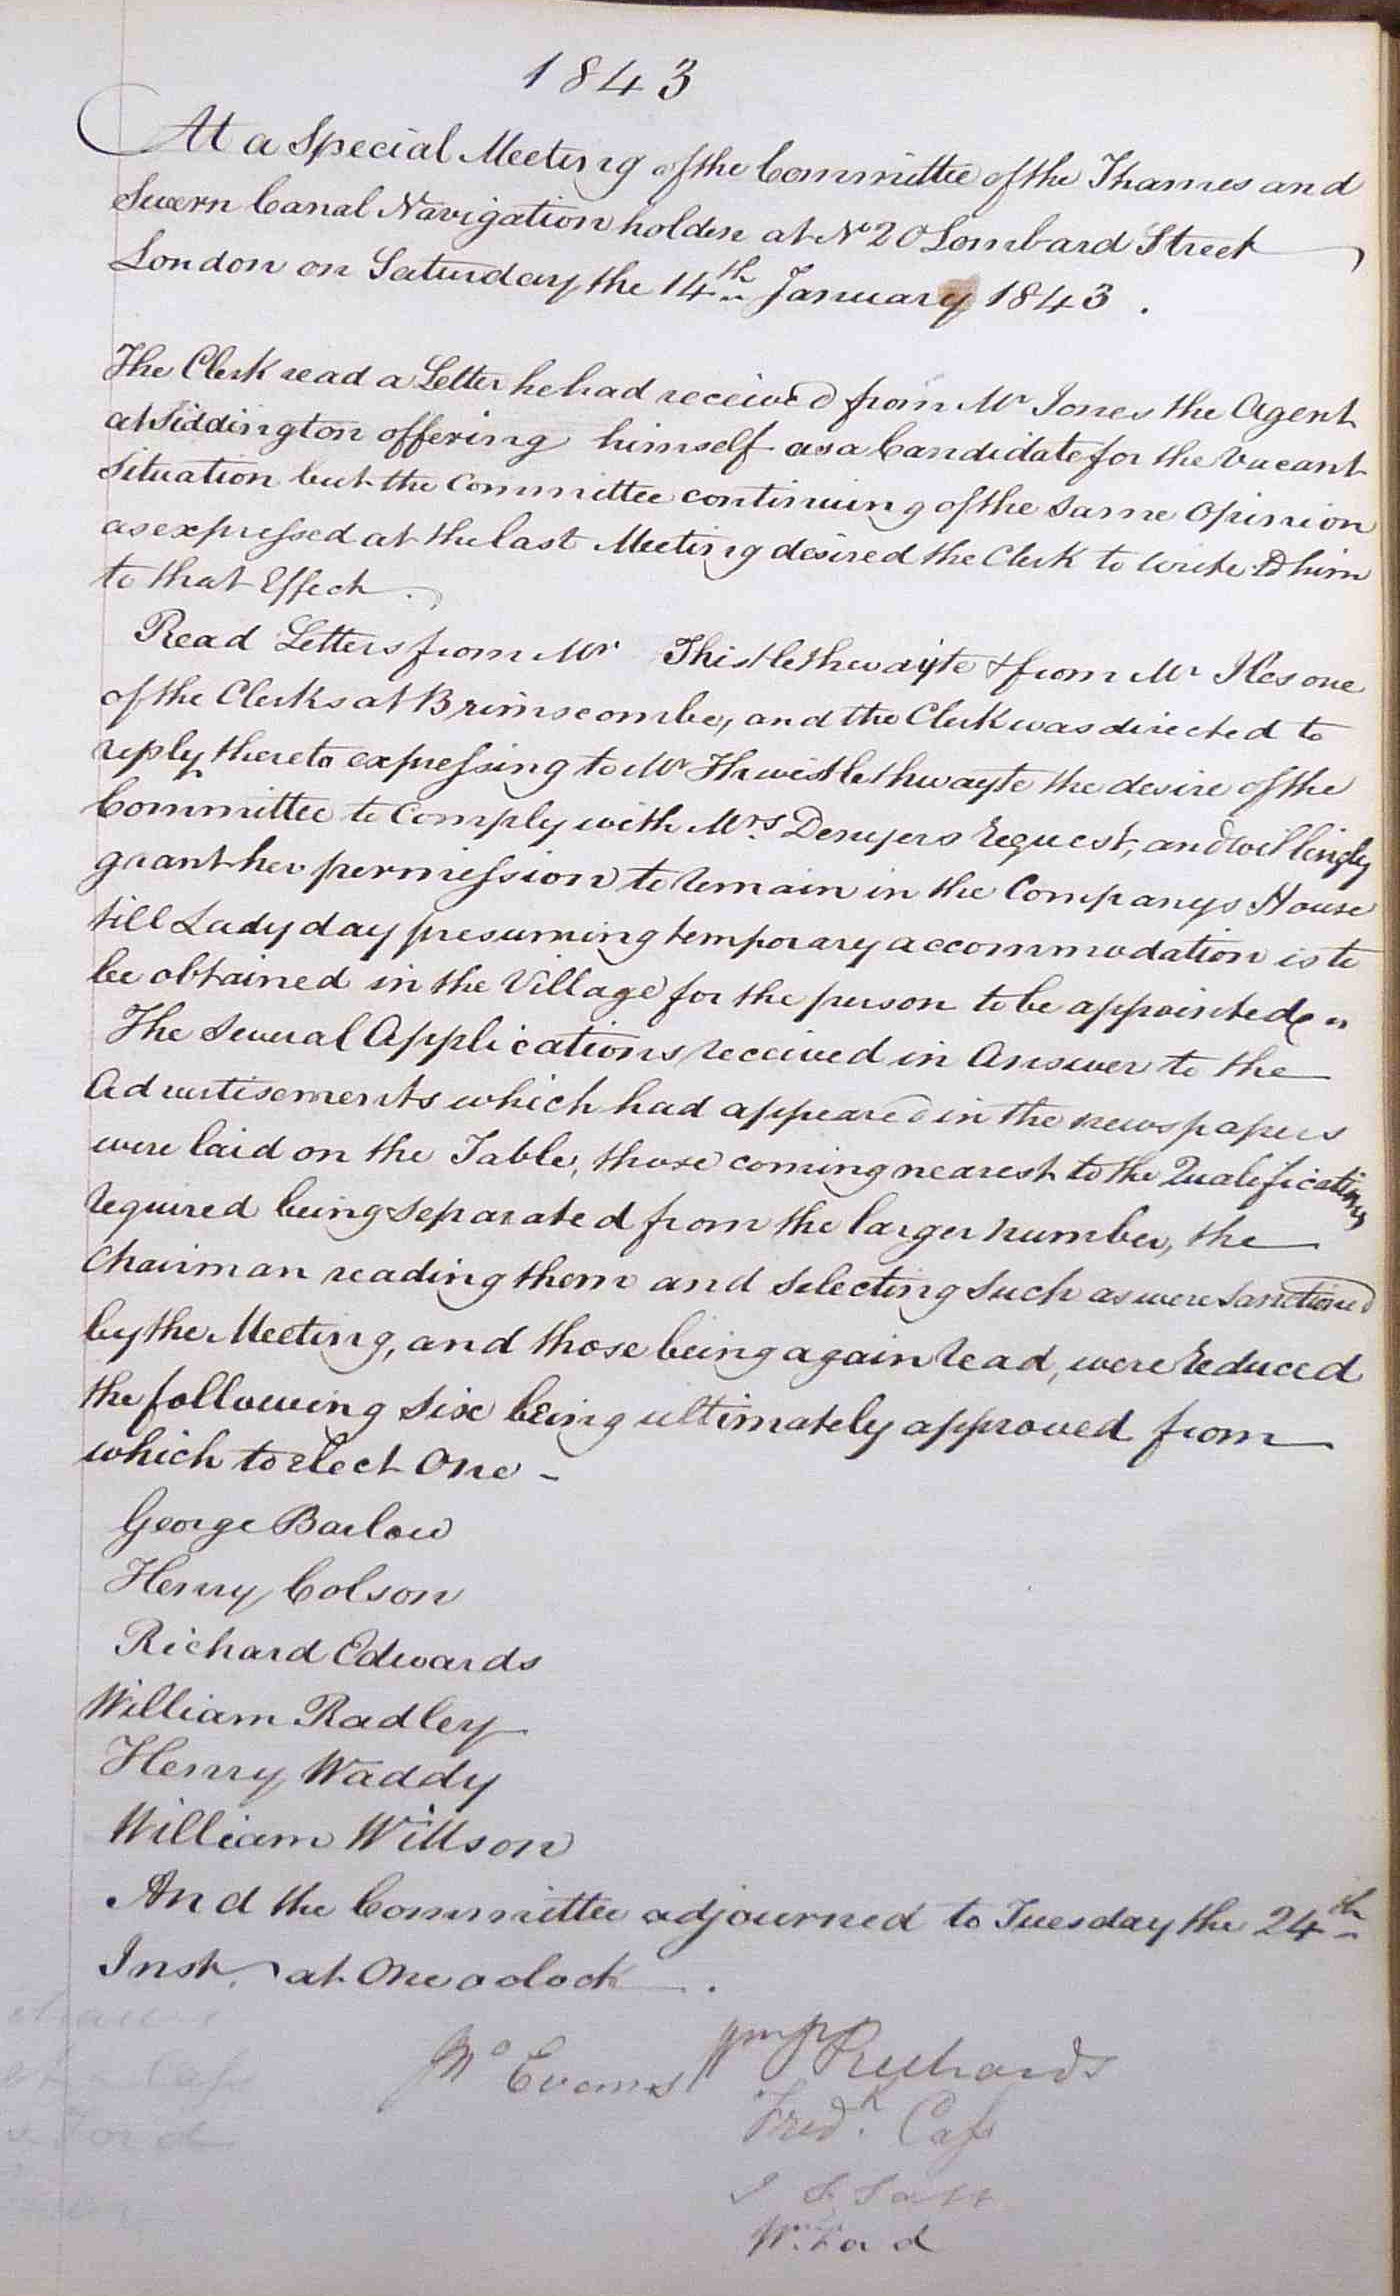 1843
At a Special Meeting of the Committee of the Thames and
Severn Canal Navigation holden at No 20 Lombard Street
London on Saturday the 14th January 1843.
The Clerk read a Letter he had received from Mr Jones the Agent
at Siddington offering himself as a Candidate for the Vacant
Situation but the Committee continuing of the same Opinion
as expressed at the last Meeting desired the Clerk to write to him
to that Effect.
Read Letters from Mr Thistlethwayte & from Mr Iles one
of the Clerks at Brimscombe, and the Clerk was directed to
reply thereto expressing to Mr Thwistlethwayte the desire of the
Committee to Comply with Mrs Denyers request, and willingly
grant her permission to remain in the Companys House
till Ladyday presuming temporary accommodation is to
be obtained in the Village for the person to be appointed
The Several Applications received in Answer to the
Advertisements which had appeared in the newspapers
were laid on the Table, those coming nearest to the Qualifications
required being separated from the larger number, the
Chairman reading them and selecting such as were sanctioned
by the Meeting, and those being again read, were reduced
the following six being ultimately approved from
which to elect One -
George Barlow
Henry Colson
Richard Edwards
William Radley
Henry Waddy
William Willson
And the Committee adjourned to Tuesday the 24th
Inst. at One o clock.
Jno Evans Richards
Fredk. Cass
Salt
W. Ford